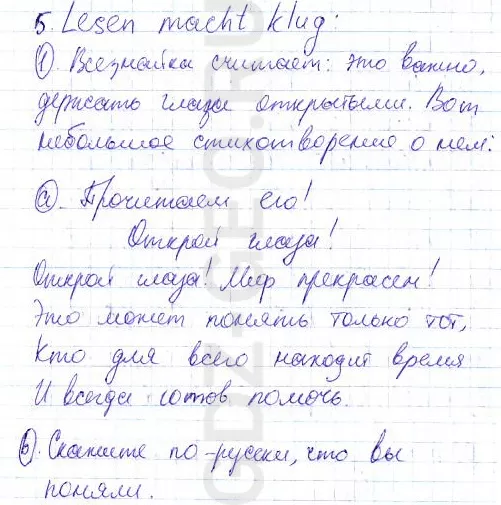 5. Lesen macht klug:
①. Всезнайка считает: это важно,
держать глаза открытыми. Вот
небольшое стихотворение о нем:
ⓐ. Прочитаем его!
Открой глаза!
Открой глаза! Мир прекрасен!
Это может понять только тот,
Кто для всего находит время
И всегда готов помочь.
ⓑ. Скажите по-русски, что вы
поняли.
GDZ-GEO.RU